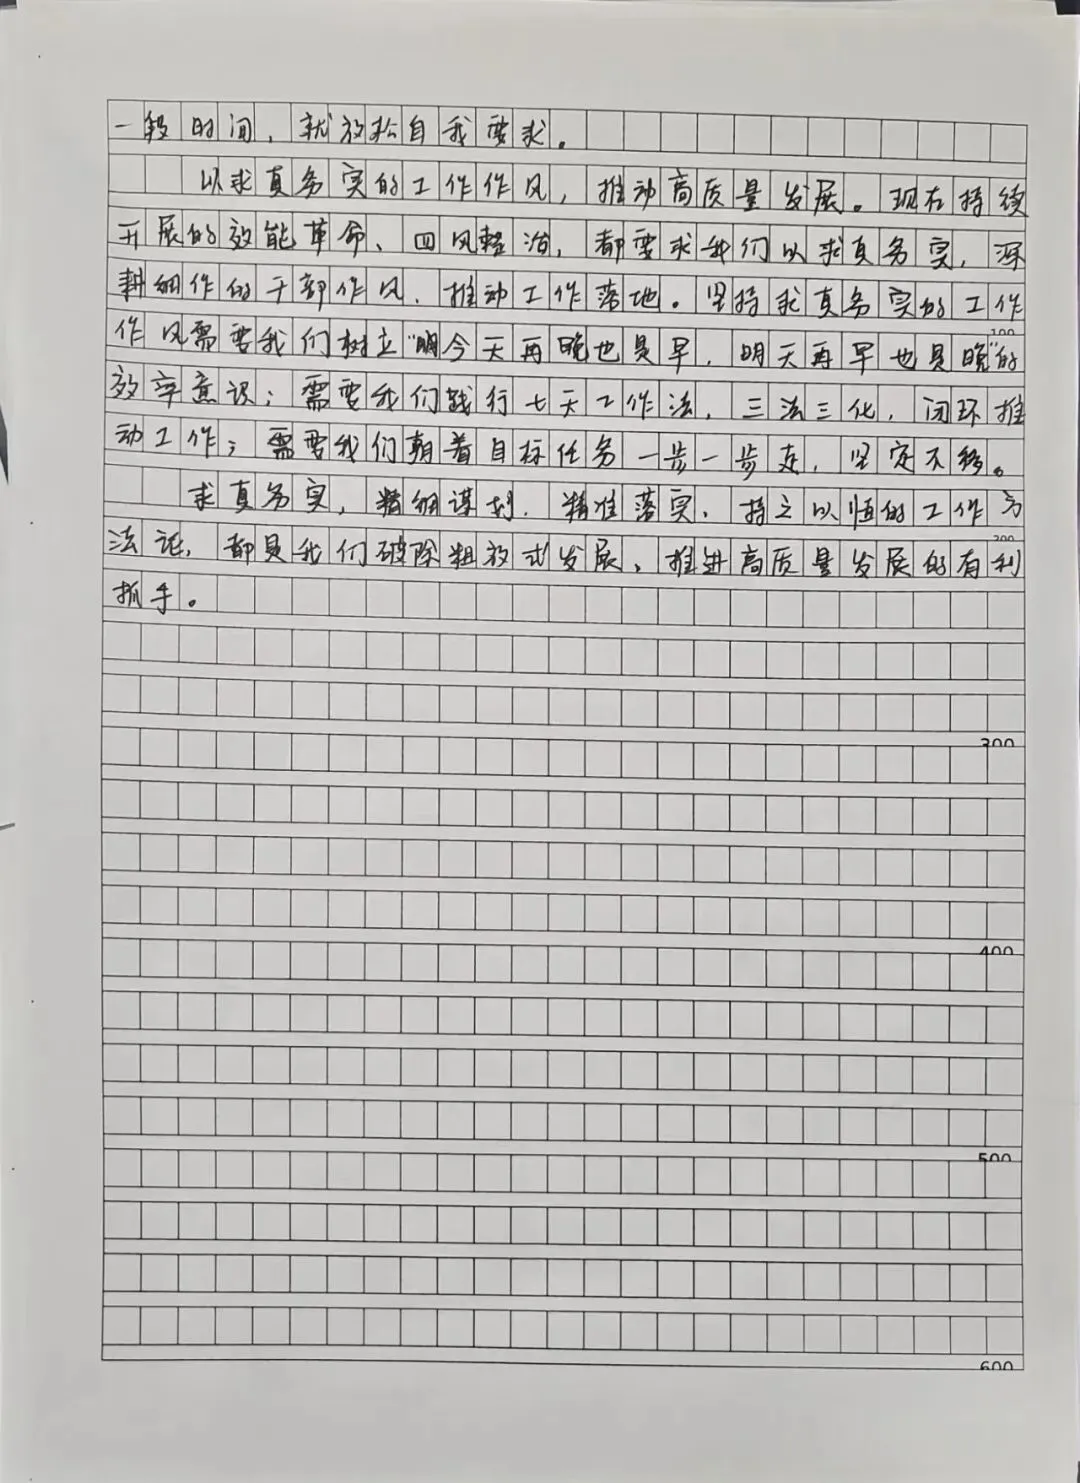 一段时间，就放松自我要求。
以求真务实的工作作风，推动高质量发展。现在持续
开展的效能革命、四风整治，都要求我们以求真务实，深
耕细作的干部作风，推动工作落地。坚持求真务实的工作
100
作风需要我们树立“今天再晚也是早，明天再早也是晚”的
效率意识；需要我们践行七天工作法，三法三化，闭环推
动工作；需要我们朝着目标任务一步一步走，坚定不移。
求真务实，精细谋划，精准落实，持之以恒的工作方
200
法论，都是我们破除粗放式发展，推进高质量发展的有利
抓手。
300
400
500
600